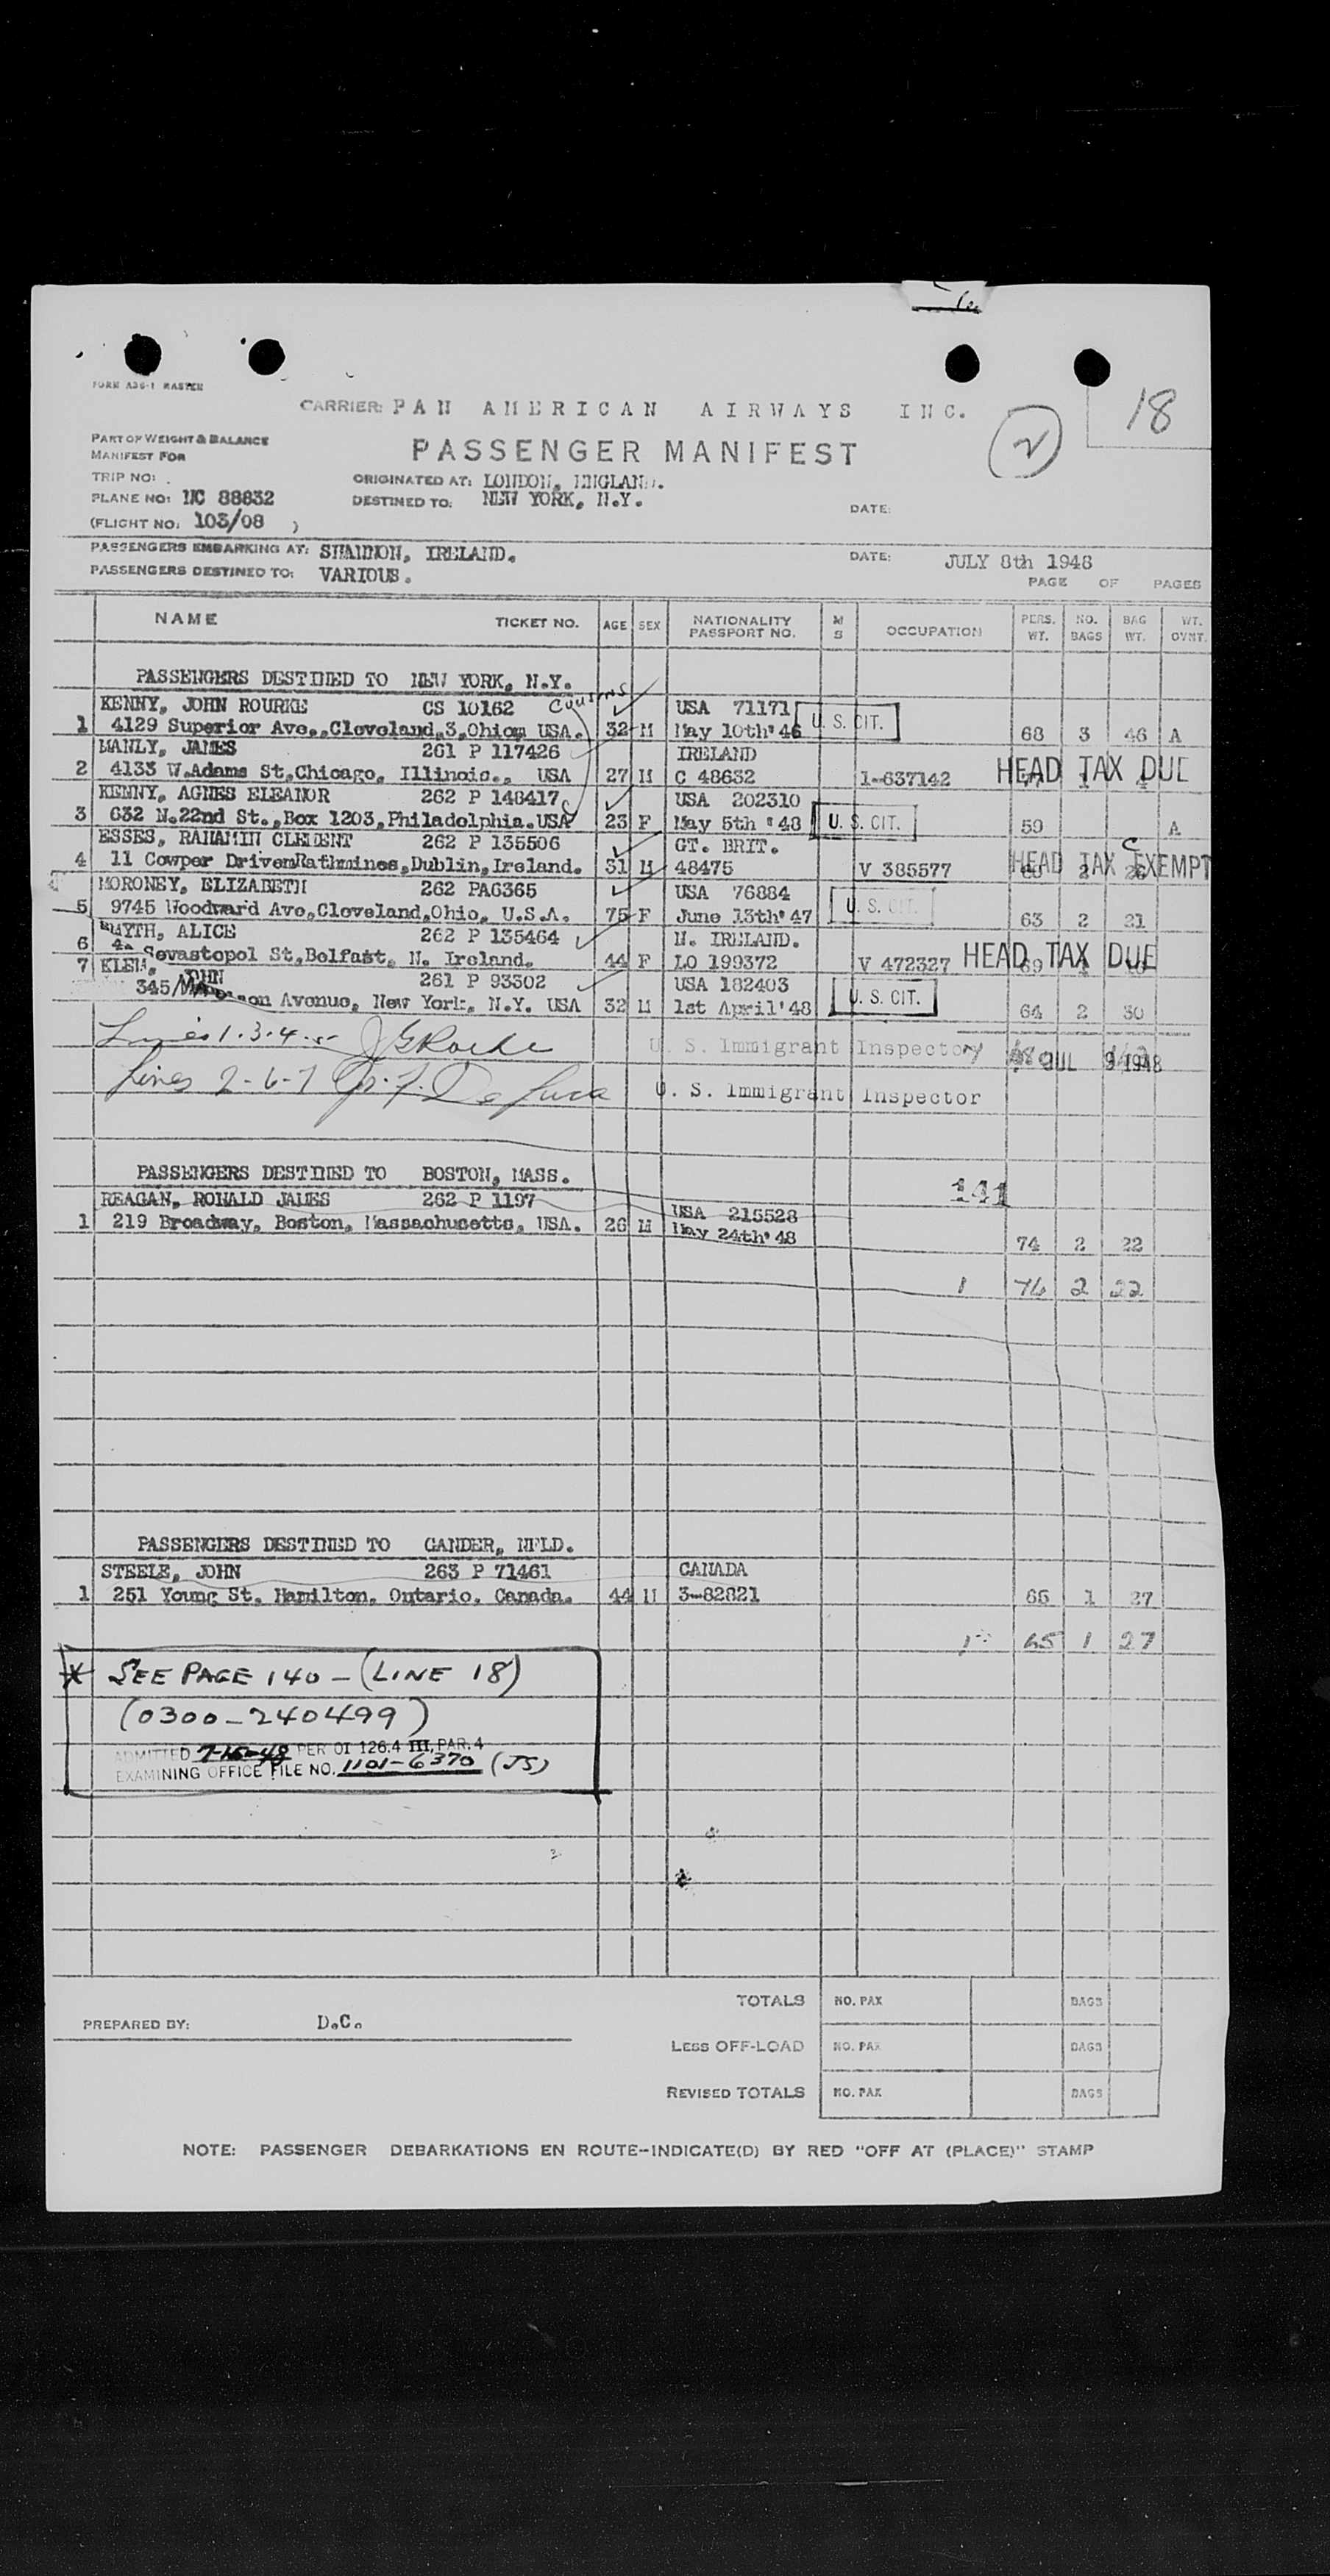 18
FORM A36-1 MASTER
CARRIER: PAN AMERICAN AIRWAYS INC.
2
PART OF WEIGHT & BALANCE
MANIFEST FOR
PASSENGER MANIFEST
TRIP NO:
ORIGINATED AT: LONDON, ENGLAND.
PLANE NO: NC 88832
DESTINED TO: NEW YORK, N.Y.
DATE:
(FLIGHT NO: 103/08 )
PASSENGERS EMBARKING AT: SHANNON, IRELAND.
DATE: JULY 8th 1948
PASSENGERS DESTINED TO: VARIOUS.
PAGE OF PAGES
NAME TICKET NO. AGE SEX NATIONALITY PASSPORT NO. M S OCCUPATION PERS. WT. NO. BAGS BAG WT. WT. OVNT.
PASSENGERS DESTINED TO NEW YORK, N.Y.
Cousins
KENNY, JOHN ROURKE CS 10162 USA 71171
1 4129 Superior Ave.,Cleveland,3,Ohio, USA. 32 M May 10th'46 U. S. CIT. 68 3 46 A
MANLY, JAMES 261 P 117426 IRELAND
2 4133 W.Adams St,Chicago, Illinois., USA 27 M C 48632 1-637142 HEAD TAX DUE
KENNY, AGNES ELEANOR 262 P 148417 USA 202310
3 632 N.22nd St.,Box 1203,Philadelphia.USA 23 F May 5th '48 U. S. CIT. 59 A
ESSES, RAHAMIN CLEMENT 262 P 135506 GT. BRIT.
4 11 Cowper DrivemRathmines,Dublin,Ireland. 31 M 48475 V 385577 HEAD TAX EXEMPT
C
MORONEY, ELIZABETH 262 PAG365 USA 76884
5 9745 Woodward Ave,Cleveland,Ohio, U.S.A. 75 F June 13th'47 U. S. CIT. 63 2 21
SMYTH, ALICE 262 P 135464 N. IRELAND.
6 Sevastopol St,Belfast, N. Ireland. 44 F LO 199372 V 472327 HEAD TAX DUE
7 KLEM, JOHN 261 P 93302 USA 182403
345 Madison Avenue, New York, N.Y. USA 32 M 1st April'48 U. S. CIT. 64 2 30
Lines 1-3-4-5 J G Rourke U. S. Immigrant Inspector JUL 9 1948
Lines 2-6-7 De Luca U. S. Immigrant Inspector
PASSENGERS DESTINED TO BOSTON, MASS.
141
REAGAN, RONALD JAMES 262 P 1197 USA 215528
1 219 Broadway, Boston, Massachusetts, USA. 26 M May 24th'48 74 2 22
1 74 2 22
PASSENGERS DESTINED TO GANDER, NFLD.
STEELE, JOHN 263 P 71461 CANADA
1 251 Young St. Hamilton, Ontario, Canada. 44 M 3-82821 65 1 27
1 65 1 27
* SEE PAGE 140 - (LINE 18)
(0300-240499)
ADMITTED 7-15-48 PER OI 126.4 III, PAR. 4
EXAMINING OFFICE FILE NO. 1101-6370 (JS)
TOTALS NO. PAX BAGS
PREPARED BY: D.C.
LESS OFF-LOAD NO. PAX BAGS
REVISED TOTALS NO. PAX BAGS
NOTE: PASSENGER DEBARKATIONS EN ROUTE--INDICATE(D) BY RED "OFF AT (PLACE)" STAMP